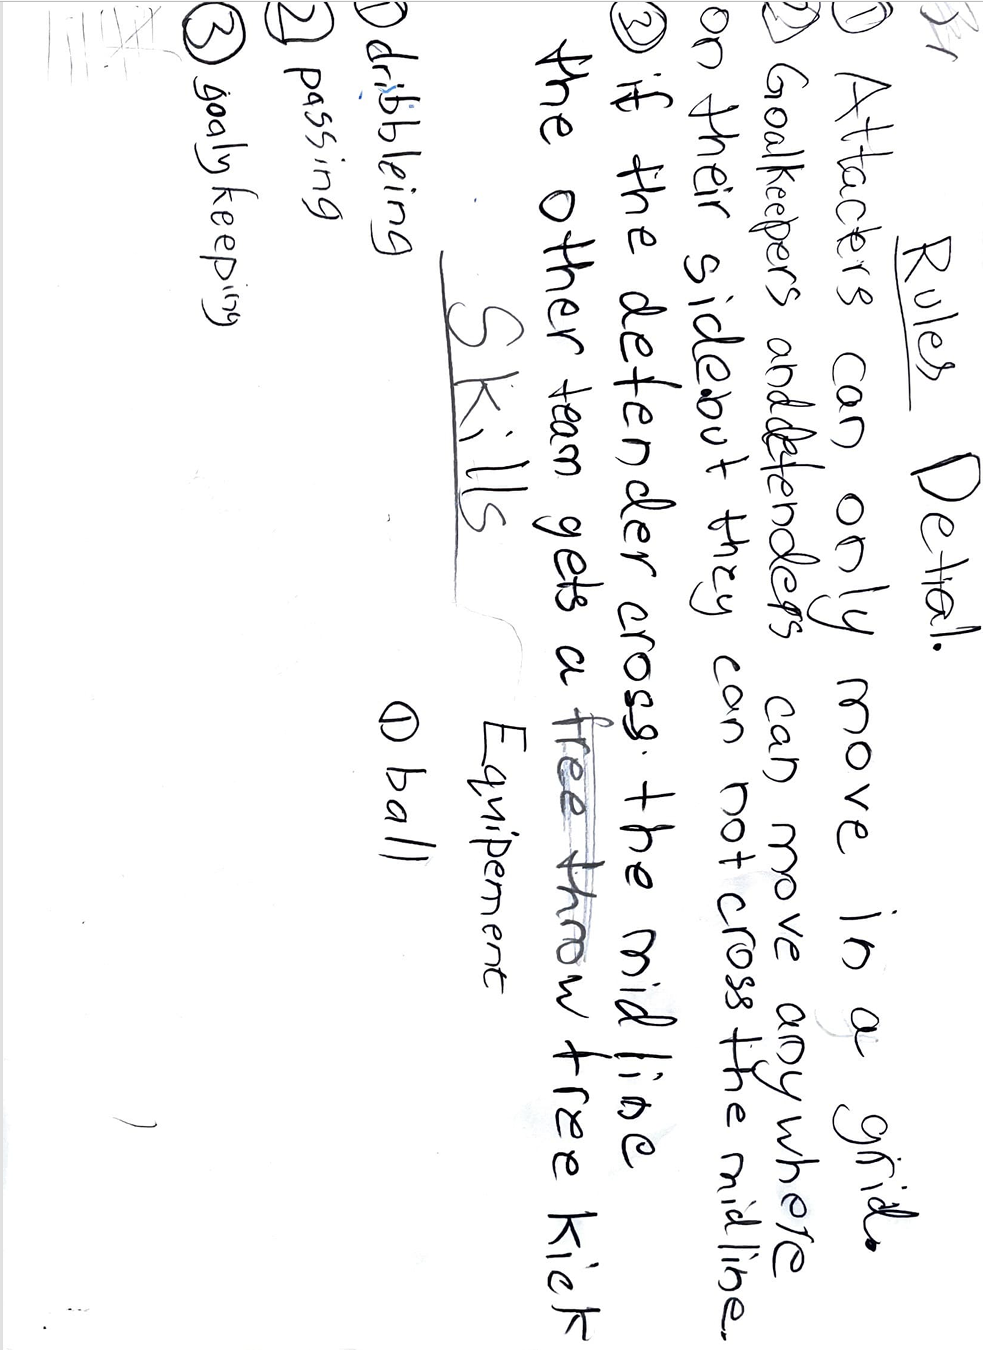 Rules Detial.
① Attacters can only move in a grid.
② Goalkeepers and defenders can move anywhere
on their side but they can not cross the mid line.
③ if the defender cross the mid line
the other team gets a free throw free kick
Skills
① dribbleing
② passing
③ goalykeeping
Equipement
① ball